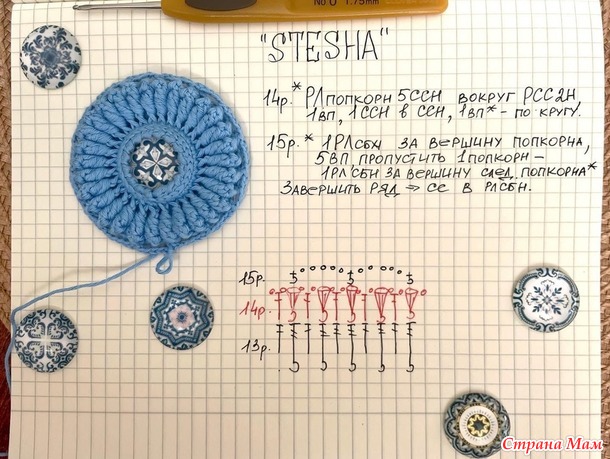 No 0 1.75mm
"STESHA"
14р. * РЛ попкорн 5ССН вокруг РСС2Н
1ВП, 1ССН в ССН, 1ВП* - по кругу.
15р. * 1РЛСБН за вершину попкорна,
5ВП, пропустить 1попкорн –
1РЛСБН за вершину след. попкорна*
Завершить ряд → СС в РЛСБН.
15р.
14р.
13р.
Страна Мам